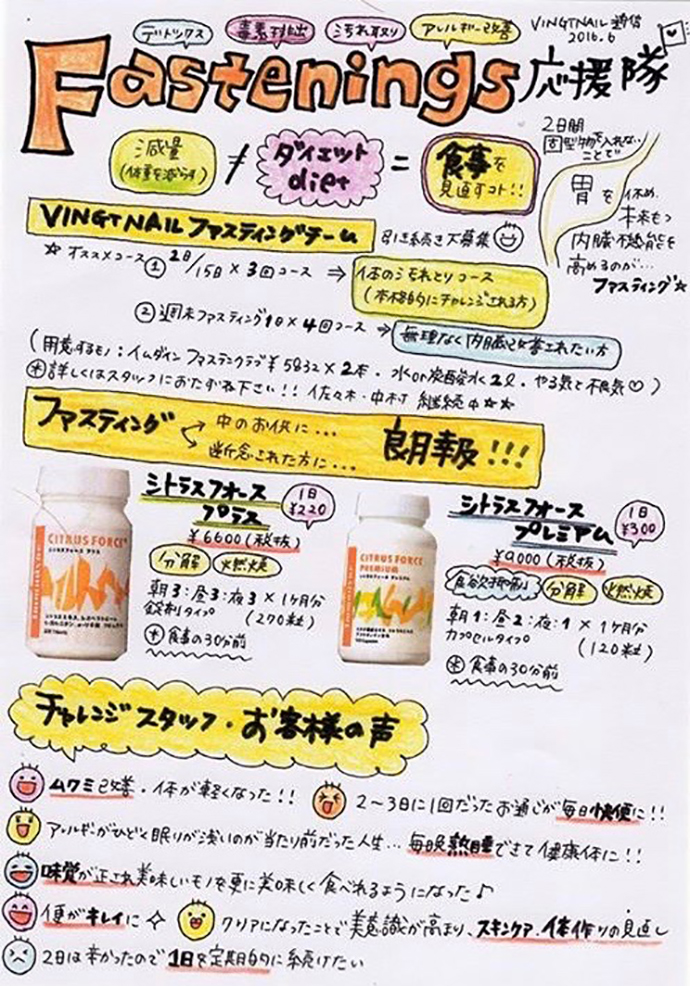 デトックス 毒素排出 汚れ取り アレルギー改善
VINGTNAIL通信
2016.6
Fastenings応援隊
減量
(体重を減らす)
≠
ダイエット
diet
=
食事を
見直すコト!!
2日間
固型物を入れない
ことで
胃を休め、
本来もつ
内臓機能を
高めるのが...
ファスティング☆
VINGTNAILファスティングチーム
引き続き大募集
☆オススメコース① 2日/15日×3回コース ⇒
体の汚れとりコース
(本格的にチャレンジされる方)
②週末ファスティング1日×4回コース →
無理なく内臓を改善されたい方
(用意するモノ:イムダイン ファスティクラブ¥5832×2本・水or炭酸水2ℓ・やる気と根気♡)
*詳しくはスタッフにおたずね下さい!!佐々木・中村 継続中☆☆
ファスティング
中のお供に...
断念された方に...
朗報!!!
シトラスフォース
プラス
1日
¥220
¥6600(税抜)
分解 燃焼
朝3:昼3:夜3×1ヶ月分
錠剤タイプ (270粒)
*食事の30分前
CITRUS FORCE
シトラスフォース プラス
シトラスフォース
プレミアム
1日
¥300
¥9,000(税抜)
食欲抑制 分解 燃焼
朝1:昼2:夜:1×1ヶ月分
カプセルタイプ (120粒)
*食事の30分前
CITRUS FORCE
PREMIUM
シトラスフォース プレミアム
チャレンジスタッフ・お客様の声
ムクミ改善・体が軽くなった!!
2〜3日に1回だったお通じが毎日快便に!!
アレルギーがひどく眠りが浅いのが当たり前だった人生...毎晩熟睡できて健康体に!!
味覚が正され美味しいモノを更に美味しく食べれるようになった♪
便がキレイに✧
クリアになったことで美意識が高まり、スキンケア、体作りの見直し
2日は辛かったので1日を定期的に続けたい